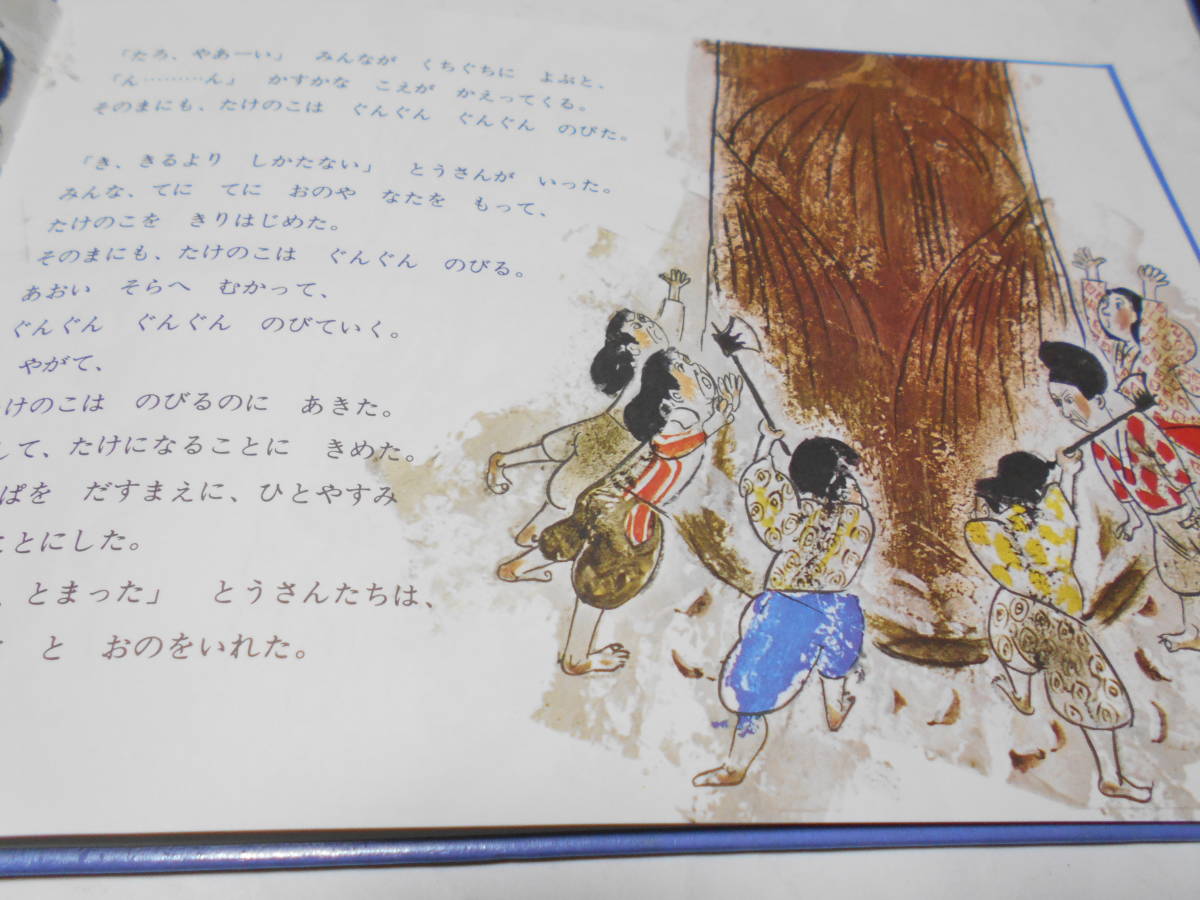 「たろ、やあーい」　みんなが　くちぐちに　よぶと、
「ん………ん」　かすかな　こえが　かえってくる。
そのまにも、たけのこは　ぐんぐん　ぐんぐん　のびた。
「き、きるより　しかたない」　とうさんが　いった。
みんな、てに　てに　おのや　なたを　もって、
たけのこを　きりはじめた。
そのまにも、たけのこは　ぐんぐん　のびる。
あおい　そらへ　むかって、
ぐんぐん　ぐんぐん　のびていく。
やがて、
けのこは　のびるのに　あきた。
して、たけになることに　きめた。
ぱを　だすまえに、ひとやすみ
ことにした。
、とまった」　とうさんたちは、
と　おのをいれた。